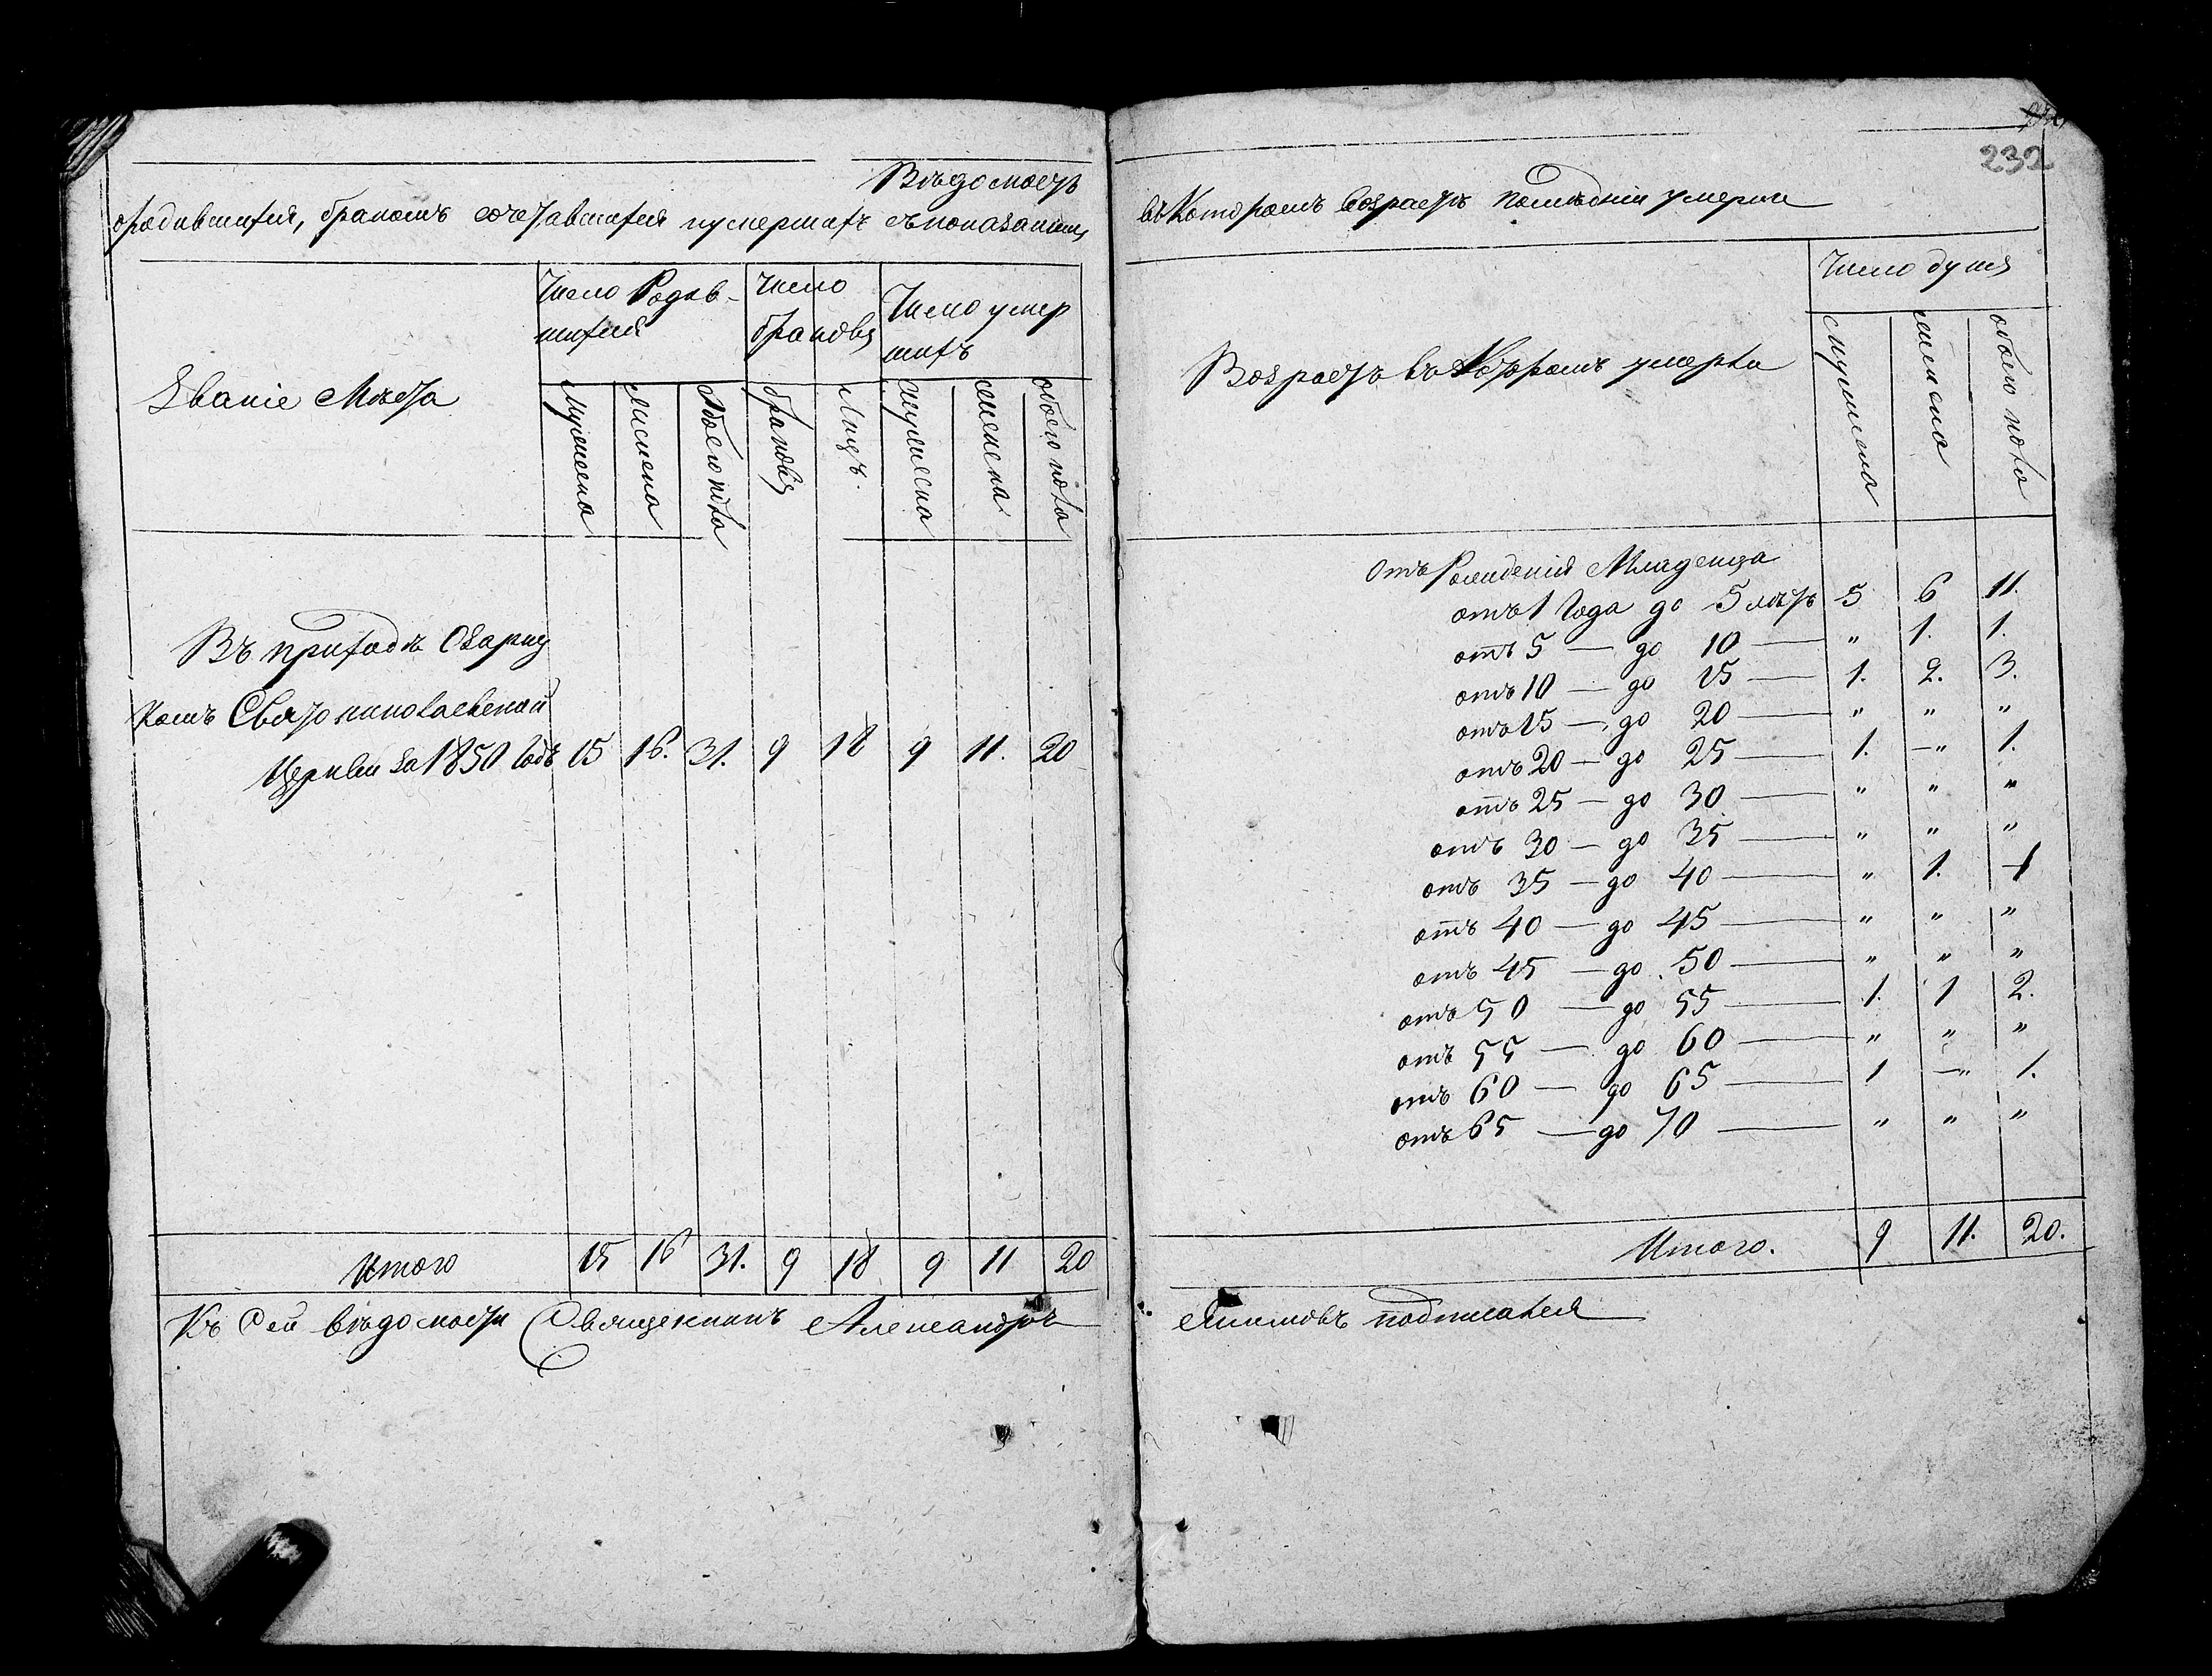 232
Вѣдомость
ородившихся, бракомъ сочетавшихся иумершихъ съпоказаніемъ
въкоторомъ возрастѣ послѣдніи умерли
Званіе Мѣста
Число Родив-
шихся
Число
браковъ
Число умер
шихъ
мужеска
женска
обоего пола
браковъ
Лицъ.
мужеска
женска
обоего пола
Въ приходѣ
комъ Святониколаевской
Церкви за 1850 годъ 15 16. 31. 9 18 9 11. 20
Итого 15 16 31. 9 18 9 11 20
Къ сей вѣдомости Священникъ Александръ
Возрастъ въ Которомъ умерли
Число душъ
мужеска
женска
обоего пола
Отъ Рожденія Младенца
отъ 1 Года до 5 лѣтъ 5 6 11.
отъ 5 — до 10 — " 1. 1.
отъ 10 — до 15 — 1. 2. 3.
отъ 15 — до 20 — " " "
отъ 20 — до 25 — 1. —" 1.
отъ 25 — до 30 — " " "
отъ 30 — до 35 — " " "
отъ 35 — до 40 — " 1. 1
отъ 40 — до 45 — " " "
отъ 45 — до 50 — " " "
отъ 50 — до 55 — 1. 1 2.
отъ 55 — до 60 — " " "
отъ 60 — до 65 — 1 —" 1.
отъ 65 — до 70 — " " "
Итого. 9 11. 20.
подписался